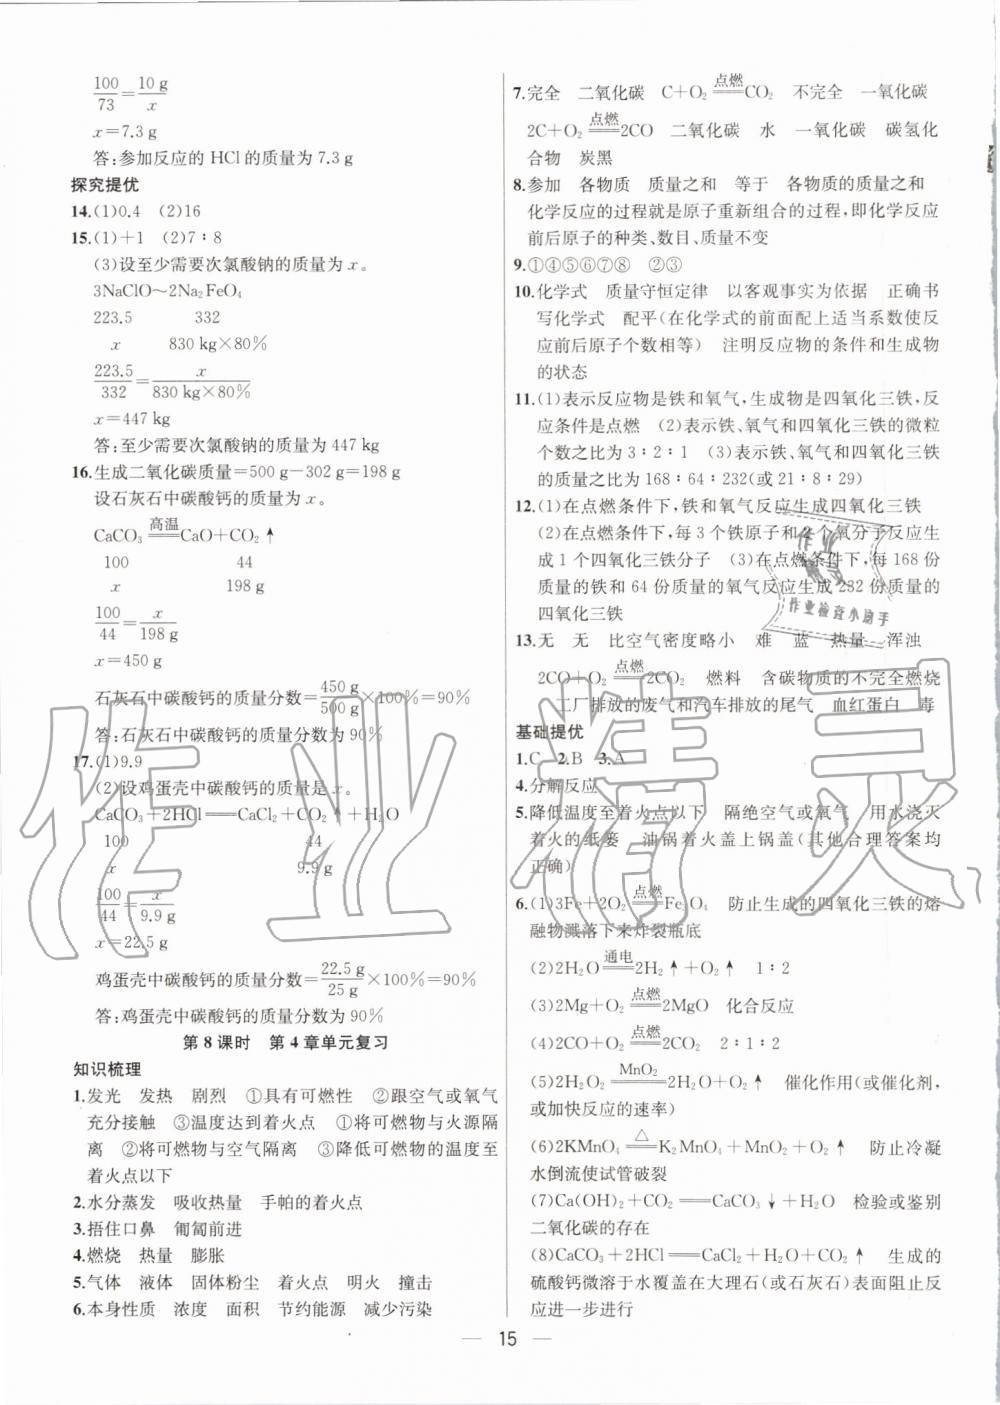 100/73=10 g/x
x=7.3 g
答:参加反应的 HCl 的质量为 7.3 g
探究提优
14.(1)0.4 (2)16
15.(1)+1 (2)7∶8
(3)设至少需要次氯酸钠的质量为 x。
3NaClO~2Na₂FeO₄
223.5 332
x 830 kg×80%
223.5/332=x/830 kg×80%
x=447 kg
答:至少需要次氯酸钠的质量为 447 kg
16.生成二氧化碳质量=500 g-302 g=198 g
设石灰石中碳酸钙的质量为 x。
CaCO₃ =高温= CaO+CO₂↑
100 44
x 198 g
100/44=x/198 g
x=450 g
石灰石中碳酸钙的质量分数=450 g/500 g×100%=90%
答:石灰石中碳酸钙的质量分数为 90%
17.(1)9.9
(2)设鸡蛋壳中碳酸钙的质量是 x。
CaCO₃+2HCl══CaCl₂+CO₂↑+H₂O
100 44
x 9.9 g
100/44=x/9.9 g
x=22.5 g
鸡蛋壳中碳酸钙的质量分数=22.5 g/25 g×100%=90%
答:鸡蛋壳中碳酸钙的质量分数为 90%
第 8 课时 第 4 章单元复习
知识梳理
1.发光 发热 剧烈 ①具有可燃性 ②跟空气或氧气
充分接触 ③温度达到着火点 ①将可燃物与火源隔
离 ②将可燃物与空气隔离 ③降低可燃物的温度至
着火点以下
2.水分蒸发 吸收热量 手帕的着火点
3.捂住口鼻 匍匐前进
4.燃烧 热量 膨胀
5.气体 液体 固体粉尘 着火点 明火 撞击
6.本身性质 浓度 面积 节约能源 减少污染
7.完全 二氧化碳 C+O₂ =点燃= CO₂ 不完全 一氧化碳
2C+O₂ =点燃= 2CO 二氧化碳 水 一氧化碳 碳氢化
合物 炭黑
8.参加 各物质 质量之和 等于 各物质的质量之和
化学反应的过程就是原子重新组合的过程,即化学反应
前后原子的种类、数目、质量不变
9.①④⑤⑥⑦⑧ ②③
10.化学式 质量守恒定律 以客观事实为依据 正确书
写化学式 配平(在化学式的前面配上适当系数使反
应前后原子个数相等) 注明反应物的条件和生成物
的状态
11.(1)表示反应物是铁和氧气,生成物是四氧化三铁,反
应条件是点燃 (2)表示铁、氧气和四氧化三铁的微粒
个数之比为 3∶2∶1 (3)表示铁、氧气和四氧化三铁的
质量之比为 168∶64∶232(或 21∶8∶29)
12.(1)在点燃条件下,铁和氧气反应生成四氧化三铁
(2)在点燃条件下,每 3 个铁原子和 2 个氧分子反应生
成 1 个四氧化三铁分子 (3)在点燃条件下,每 168 份
质量的铁和 64 份质量的氧气反应生成 232 份质量的
四氧化三铁
13.无 无 比空气密度略小 难 蓝 热量 浑浊
2CO+O₂ =点燃= 2CO₂ 燃料 含碳物质的不完全燃烧
工厂排放的废气和汽车排放的尾气 血红蛋白 毒
基础提优
1.C 2.B 3.A
4.分解反应
5.降低温度至着火点以下 隔绝空气或氧气 用水浇灭
着火的纸篓 油锅着火盖上锅盖(其他合理答案均
正确)
6.(1)3Fe+2O₂ =点燃= Fe₃O₄ 防止生成的四氧化三铁的熔
融物溅落下来炸裂瓶底
(2)2H₂O =通电= 2H₂↑+O₂↑ 1∶2
(3)2Mg+O₂ =点燃= 2MgO 化合反应
(4)2CO+O₂ =点燃= 2CO₂ 2∶1∶2
(5)2H₂O₂ =MnO₂= 2H₂O+O₂↑ 催化作用(或催化剂,
或加快反应的速率)
(6)2KMnO₄ =△= K₂MnO₄+MnO₂+O₂↑ 防止冷凝
水倒流使试管破裂
(7)Ca(OH)₂+CO₂══CaCO₃↓+H₂O 检验或鉴别
二氧化碳的存在
(8)CaCO₃+2HCl══CaCl₂+H₂O+CO₂↑ 生成的
硫酸钙微溶于水覆盖在大理石(或石灰石)表面阻止反
应进一步进行
15
作业精灵
作业检查小助手